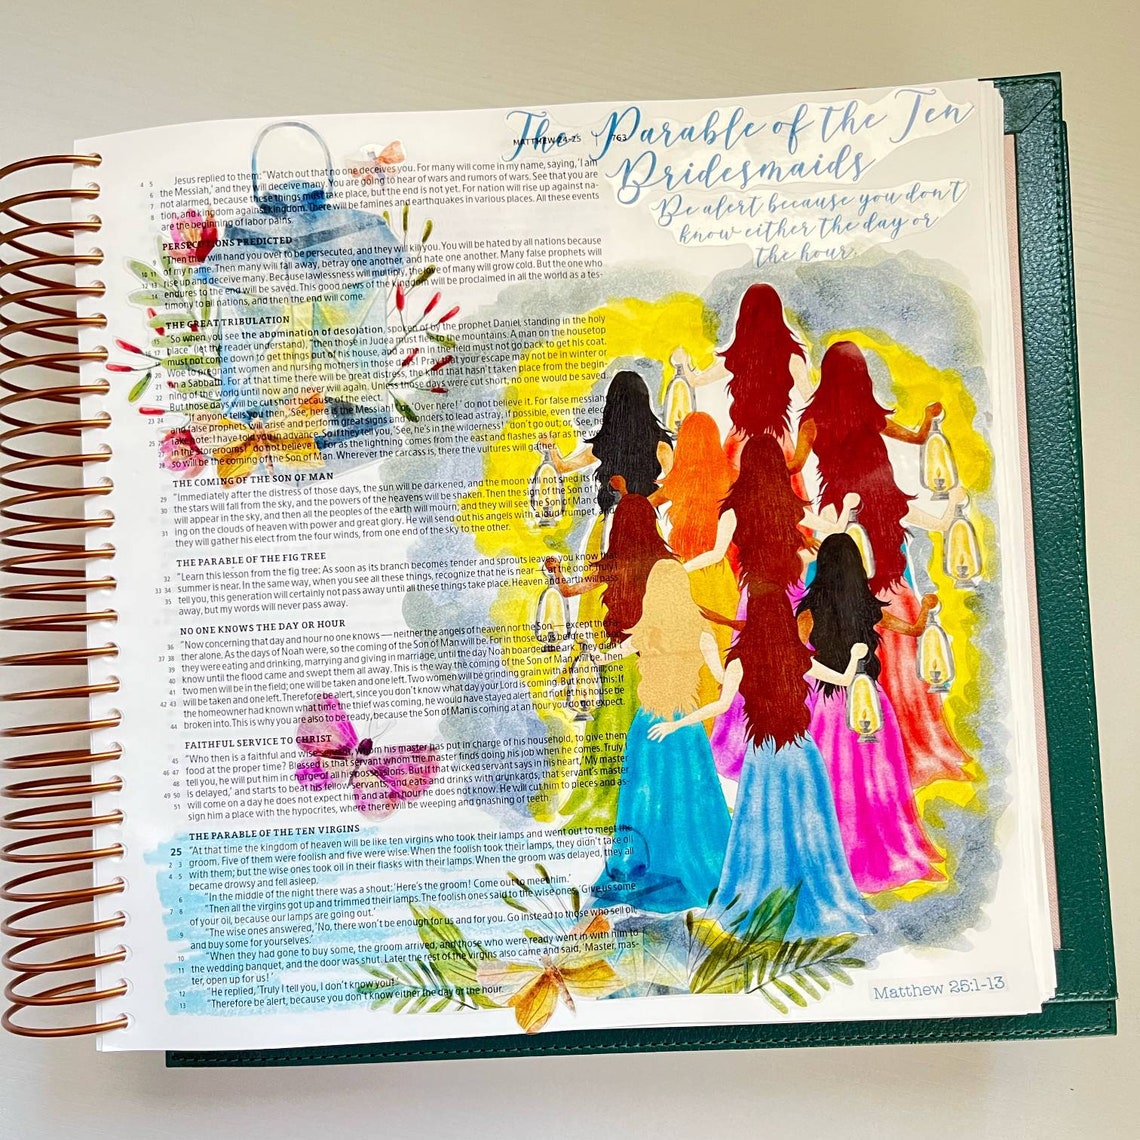 MATTHEW 24-25 763
The Parable of the Ten
Bridesmaids
Be alert because you don't
know either the day or
the hour.
4 5 Jesus replied to them, "Watch out that no one deceives you. For many will come in my name, saying, 'I am
6 the Messiah,' and they will deceive many. You are going to hear of wars and rumors of wars. See that you are
7 not alarmed, because these things must take place, but the end is not yet. For nation will rise up against na-
8 tion, and kingdom against kingdom. There will be famines and earthquakes in various places. All these events
are the beginning of labor pains.
PERSECUTIONS PREDICTED
9 "Then they will hand you over to be persecuted, and they will kill you. You will be hated by all nations because
10 11 of my name. Then many will fall away, betray one another, and hate one another. Many false prophets will
12 13 rise up and deceive many. Because lawlessness will multiply, the love of many will grow cold. But the one who
14 endures to the end will be saved. This good news of the kingdom will be proclaimed in all the world as a tes-
timony to all nations, and then the end will come.
THE GREAT TRIBULATION
15 "So when you see the abomination of desolation, spoken of by the prophet Daniel, standing in the holy
16 17 place" (let the reader understand), "then those in Judea must flee to the mountains. A man on the housetop
18 must not come down to get things out of his house, and a man in the field must not go back to get his coat.
19 20 Woe to pregnant women and nursing mothers in those days! Pray that your escape may not be in winter or
21 on a Sabbath. For at that time there will be great distress, the kind that hasn't taken place from the begin-
22 ning of the world until now and never will again. Unless those days were cut short, no one would be saved.
But those days will be cut short because of the elect.
23 24 "If anyone tells you then, 'See, here is the Messiah!' or, 'Over here!' do not believe it. For false messiahs
and false prophets will arise and perform great signs and wonders to lead astray, if possible, even the elect.
25 26 Take note: I have told you in advance. So if they tell you, 'See, he's in the wilderness!' don't go out; or, 'See, he's
27 in the storerooms!' do not believe it. For as the lightning comes from the east and flashes as far as the west,
28 so will be the coming of the Son of Man. Wherever the carcass is, there the vultures will gather.
THE COMING OF THE SON OF MAN
29 "Immediately after the distress of those days, the sun will be darkened, and the moon will not shed its light;
30 the stars will fall from the sky, and the powers of the heavens will be shaken. Then the sign of the Son of Man
will appear in the sky, and then all the peoples of the earth will mourn; and they will see the Son of Man com-
31 ing on the clouds of heaven with power and great glory. He will send out his angels with a loud trumpet, and
they will gather his elect from the four winds, from one end of the sky to the other.
THE PARABLE OF THE FIG TREE
32 "Learn this lesson from the fig tree: As soon as its branch becomes tender and sprouts leaves, you know that
33 34 summer is near. In the same way, when you see all these things, recognize that he is near — at the door. Truly I
35 tell you, this generation will certainly not pass away until all these things take place. Heaven and earth will pass
away, but my words will never pass away.
NO ONE KNOWS THE DAY OR HOUR
36 "Now concerning that day and hour no one knows — neither the angels of heaven nor the Son — except the Fa-
37 38 ther alone. As the days of Noah were, so the coming of the Son of Man will be. For in those days before the flood
39 they were eating and drinking, marrying and giving in marriage, until the day Noah boarded the ark. They didn't
40 know until the flood came and swept them all away. This is the way the coming of the Son of Man will be. Then
41 two men will be in the field; one will be taken and one left. Two women will be grinding grain with a hand mill; one
42 43 will be taken and one left. Therefore be alert, since you don't know what day your Lord is coming. But know this: If
the homeowner had known what time the thief was coming, he would have stayed alert and not let his house be
44 broken into. This is why you are also to be ready, because the Son of Man is coming at an hour you do not expect.
FAITHFUL SERVICE TO CHRIST
45 "Who then is a faithful and wise servant, whom his master has put in charge of his household, to give them
46 47 food at the proper time? Blessed is that servant whom the master finds doing his job when he comes. Truly I
48 tell you, he will put him in charge of all his possessions. But if that wicked servant says in his heart, 'My master
49 50 is delayed,' and starts to beat his fellow servants, and eats and drinks with drunkards, that servant's master
51 will come on a day he does not expect him and at an hour he does not know. He will cut him to pieces and as-
sign him a place with the hypocrites, where there will be weeping and gnashing of teeth.
THE PARABLE OF THE TEN VIRGINS
25 "At that time the kingdom of heaven will be like ten virgins who took their lamps and went out to meet the
2 3 groom. Five of them were foolish and five were wise. When the foolish took their lamps, they didn't take oil
4 5 with them; but the wise ones took oil in their flasks with their lamps. When the groom was delayed, they all
became drowsy and fell asleep.
6 "In the middle of the night there was a shout: 'Here's the groom! Come out to meet him.'
7 8 "Then all the virgins got up and trimmed their lamps. The foolish ones said to the wise ones, 'Give us some
of your oil, because our lamps are going out.'
9 "The wise ones answered, 'No, there won't be enough for us and for you. Go instead to those who sell oil,
and buy some for yourselves.'
10 "When they had gone to buy some, the groom arrived, and those who were ready went in with him to
11 the wedding banquet, and the door was shut. Later the rest of the virgins also came and said, 'Master, mas-
ter, open up for us!'
12 "He replied, 'Truly I tell you, I don't know you!'
13 "Therefore be alert, because you don't know either the day or the hour.
Matthew 25:1-13